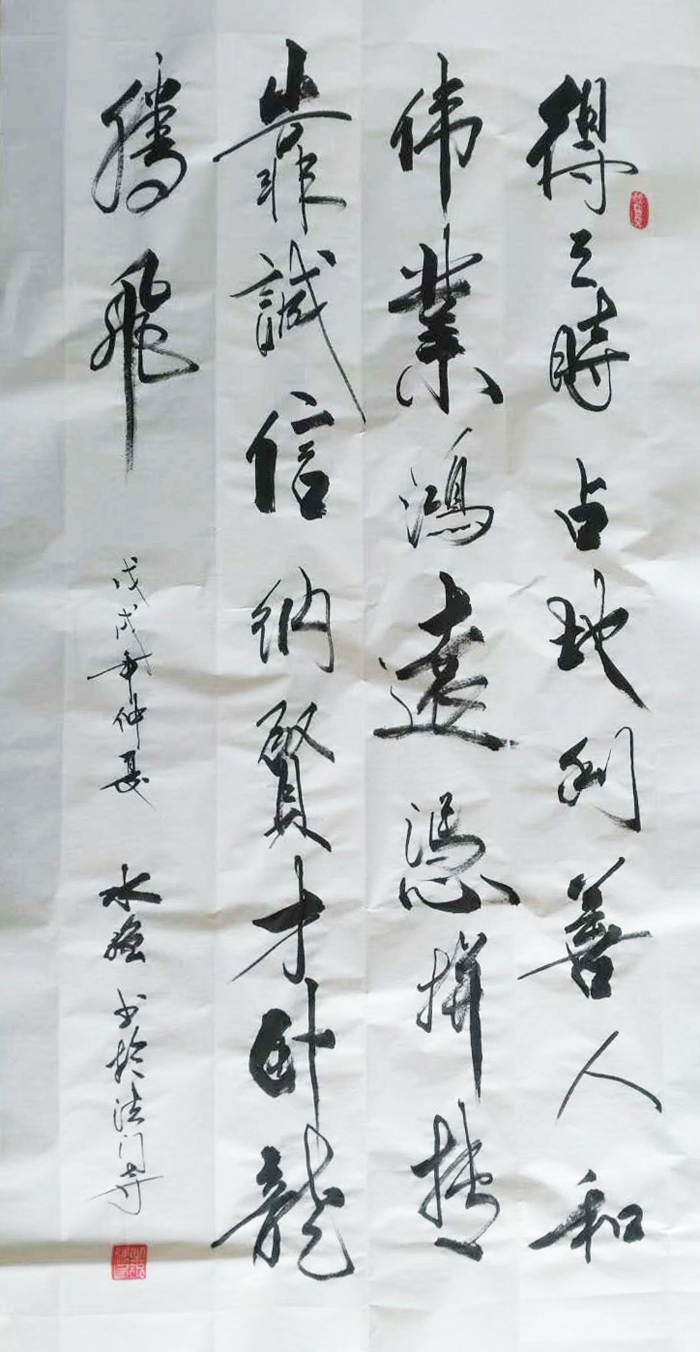 得天時占地利善人和
伟業鴻遠憑拼搏
靠誠信納賢才卧龍
騰飛
戊戌年仲夏 水 书於法门寺